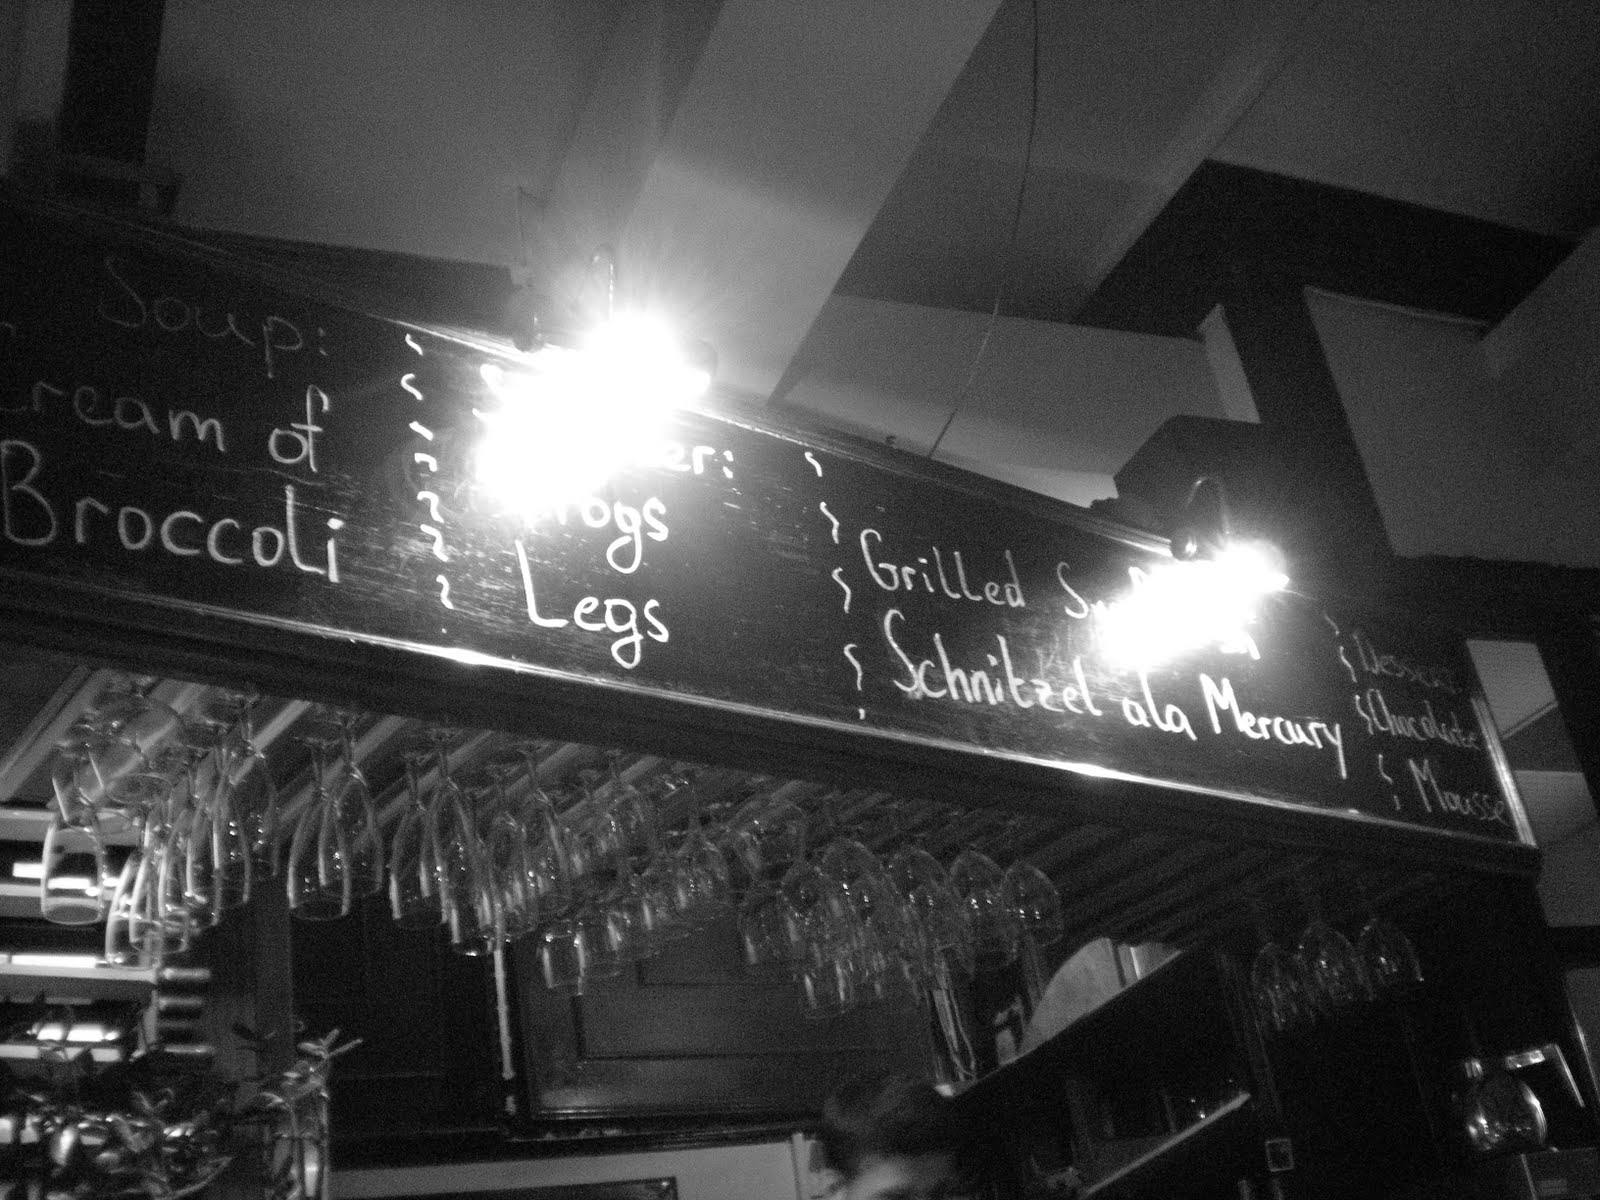 Soup:
Cream of
Broccoli
Frogs
Legs
Grilled
Schnitzel ala Mercury
Dessert
Chocolate
Mousse